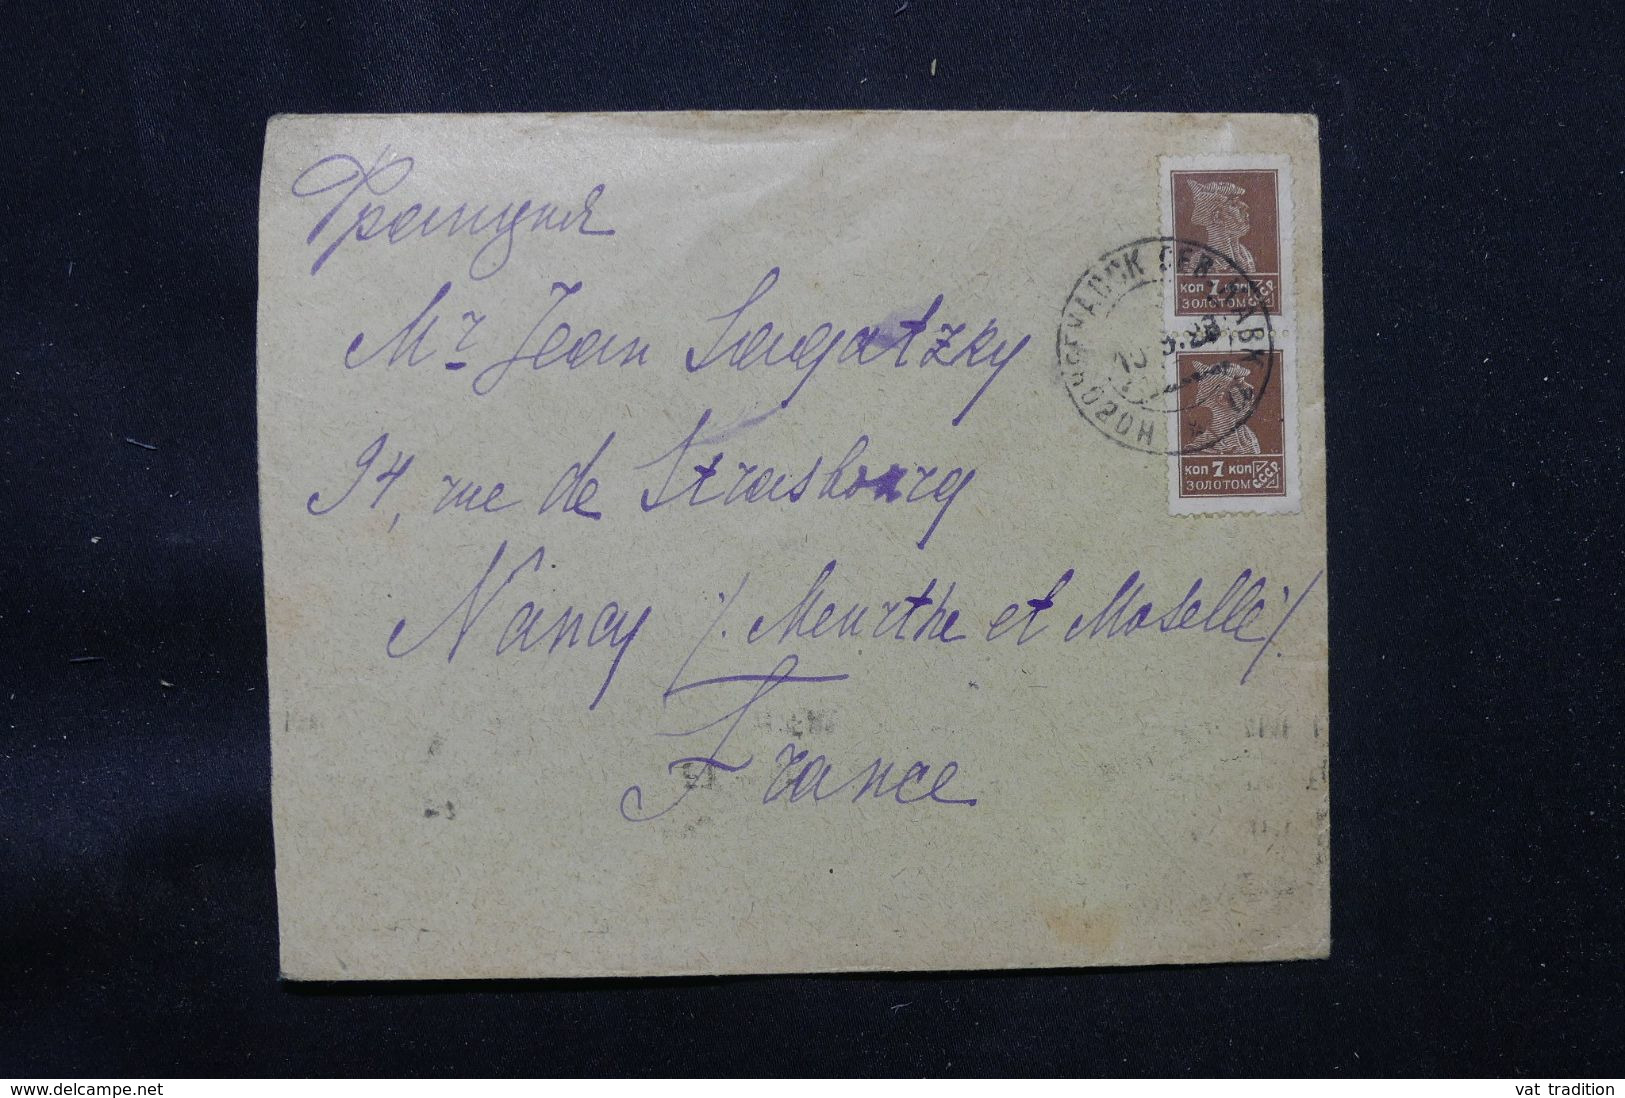 Франция
Mr Jean Sagatzky
94, rue de Strasbourg
Nancy /. Meurthe et Moselle /.
France
КОП 7 КОП
ЗОЛОТОМ СССР
КОП 7 КОП
ЗОЛОТОМ СССР
www.delcampe.net
vat tradition